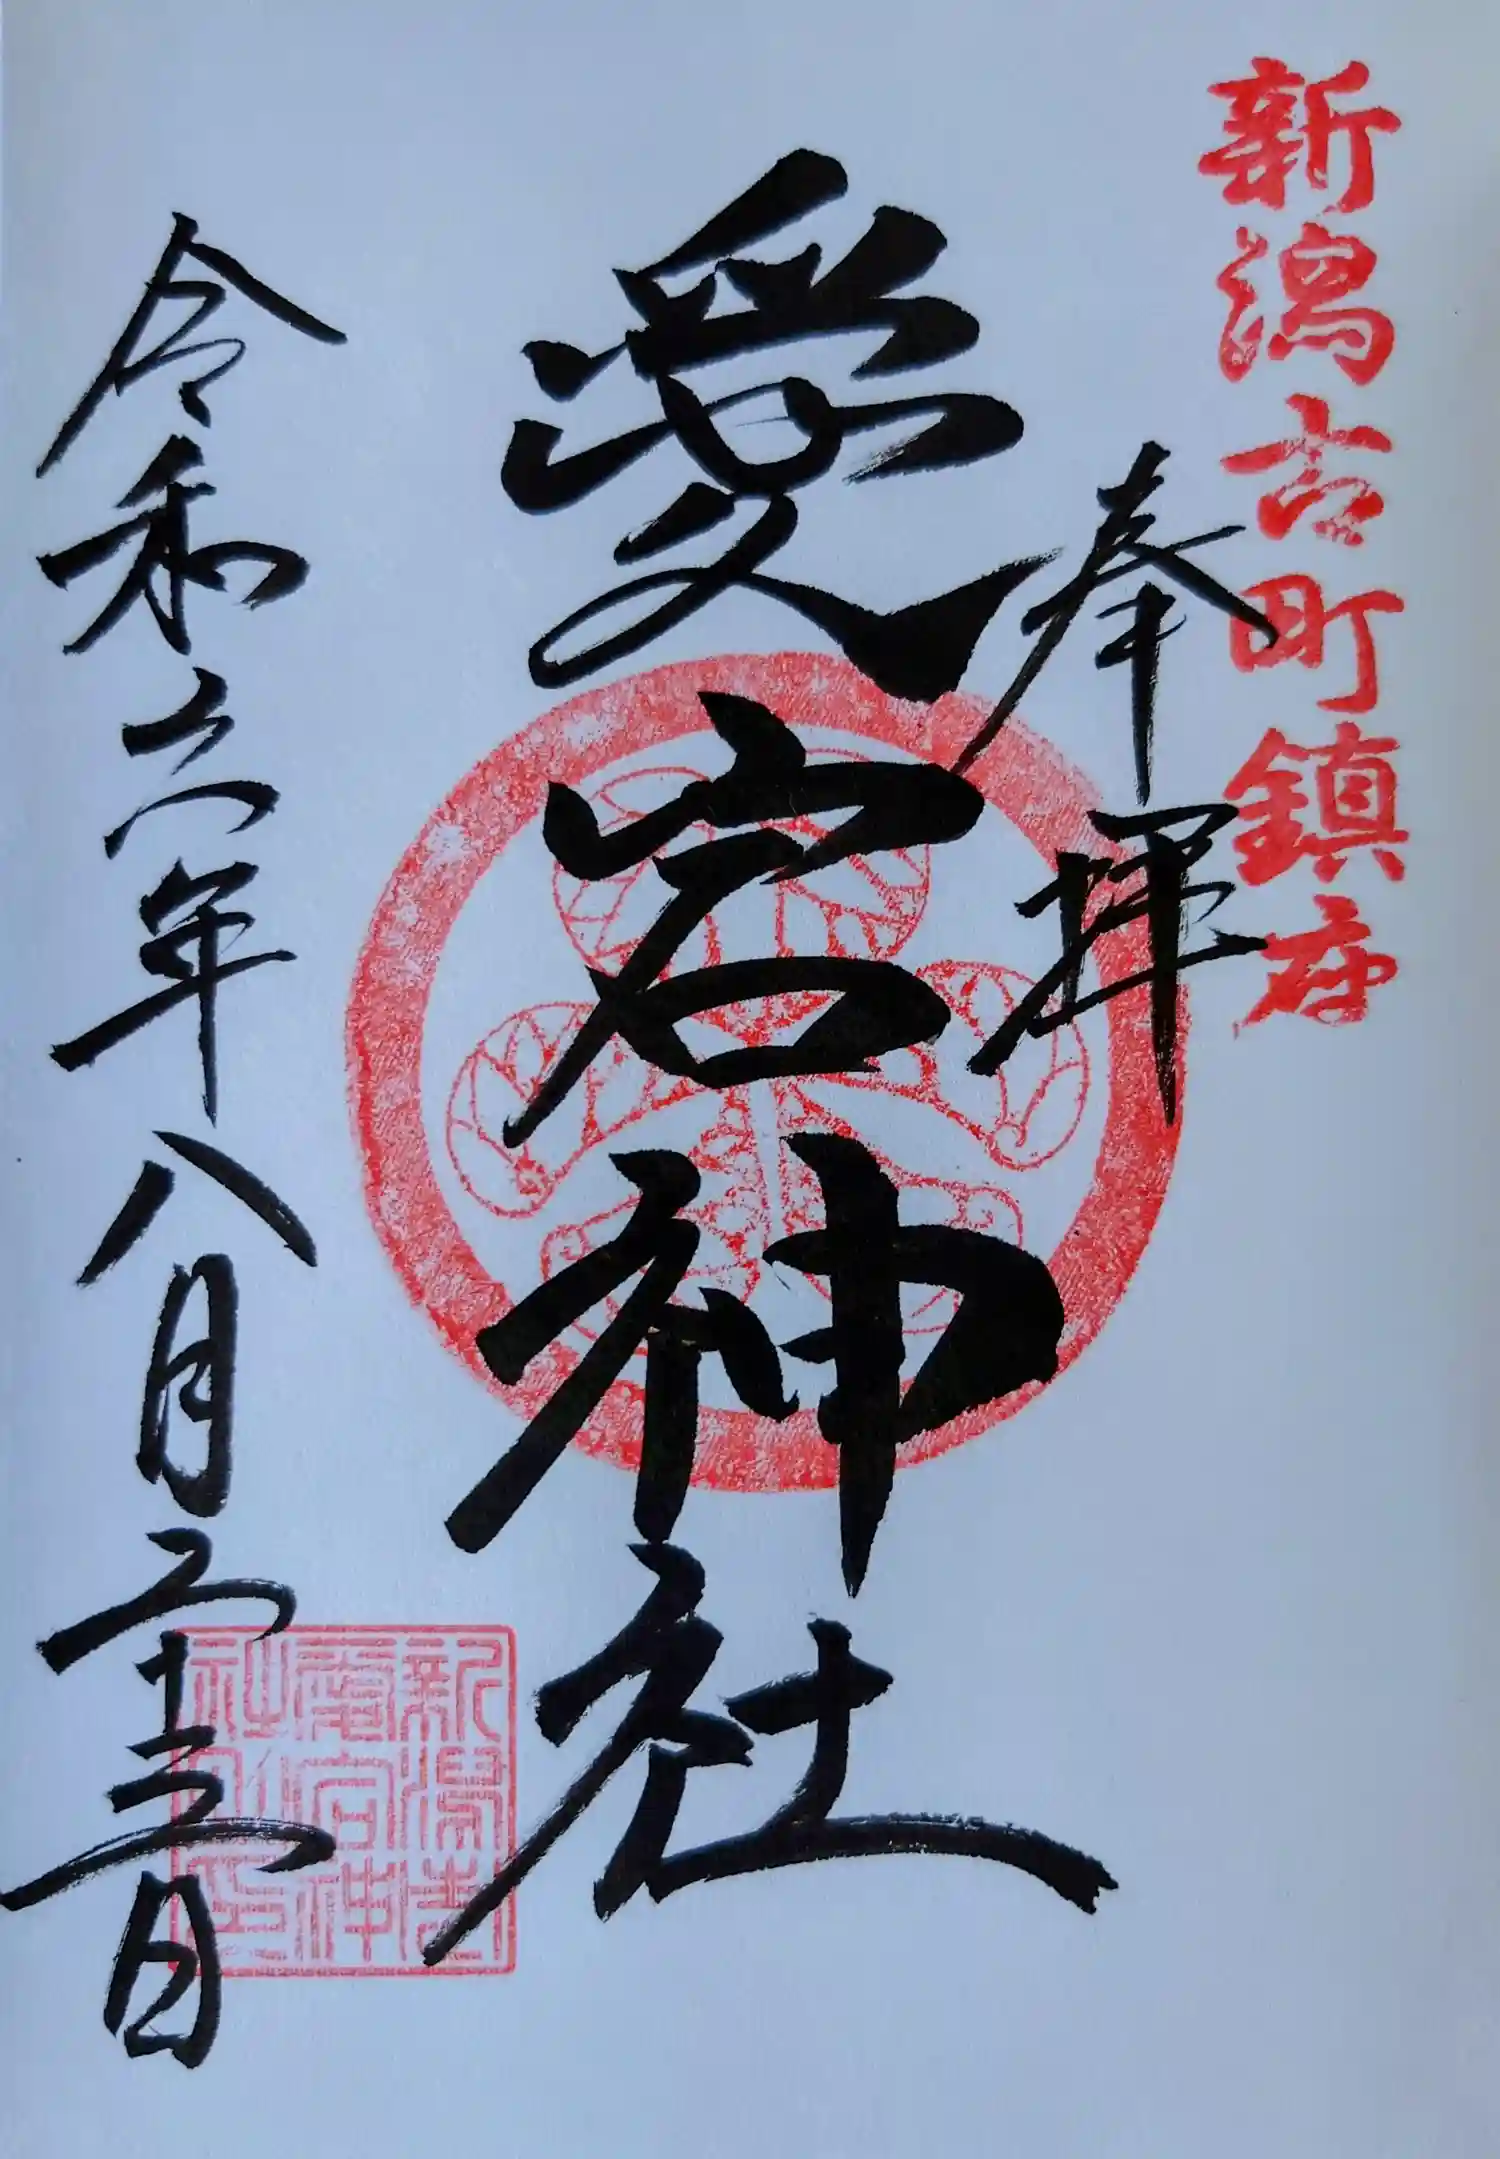 新潟古町鎮座
奉拝
愛宕神社
令和六年八月二十三日
新潟古
愛宕神
社之印